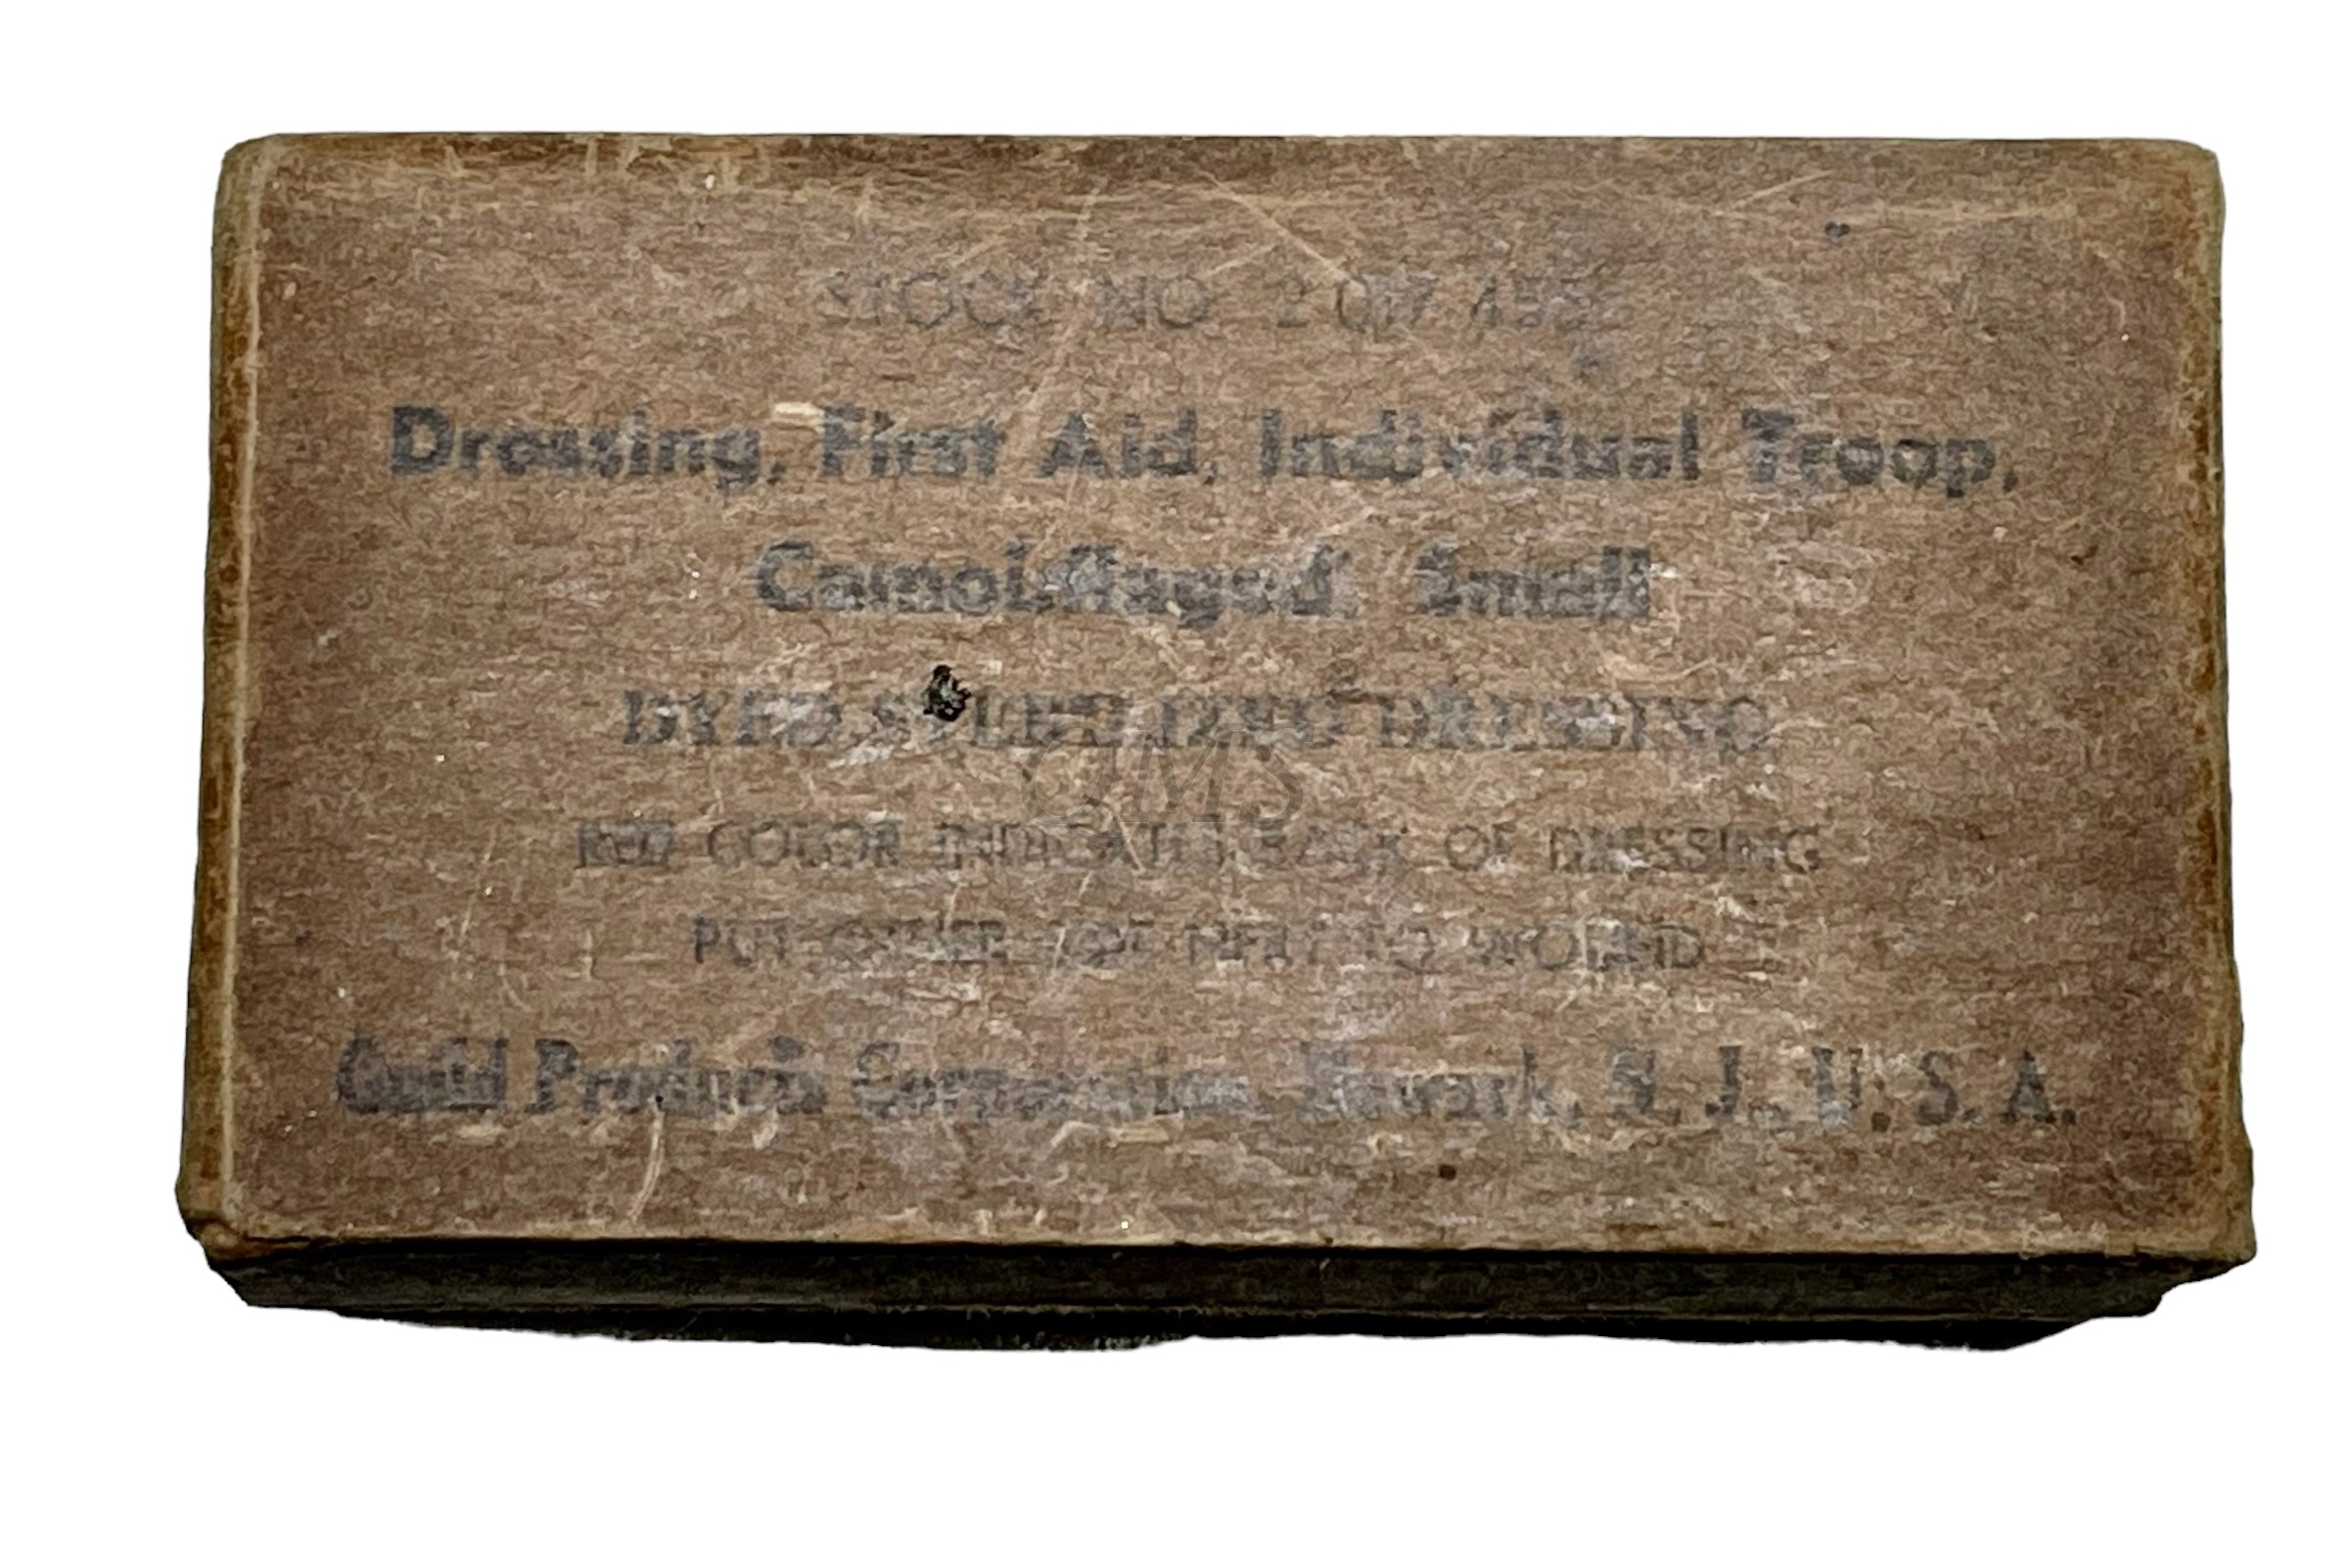 STOCK NO 2 017 45
Dressing, First Aid, Individual Troop,
Camouflaged, Small
DYED STERILIZED DRESSING
RED COLOR INDICATES BACK OF DRESSING
PUT OTHER SIDE NEXT TO WOUND
QMS
Guild Products Corporation, Newark, N. J., U. S. A.